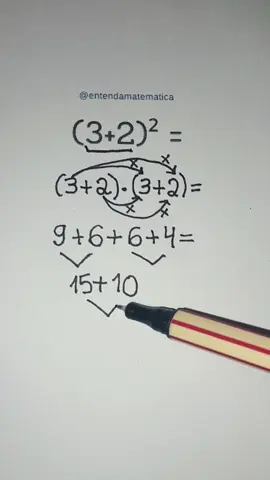 @entendamatematica
(3+2)² =
(3+2)·(3+2)=
x
x
x
x
9+6+6+4=
15+10